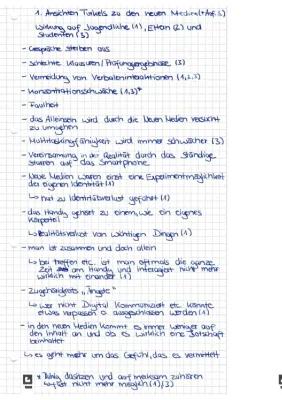 1. Ansichten Turkels zu den neuen Medien (+Auf.3)
Wirkung auf Jugendliche (1), Eltern (2) und
Studenten (3)
- Gespräche sterben aus
- schlechte Klausuren/Prüfungsergebnisse (3)
- Vermeidung von Verbalinteraktionen (1,2,3)
- Konzentrationsschwäche (1,3)*
- Faulheit
- das Alleinsein wird durch die Neuen Medien versucht
zu umgehen
- Multitaskingfähigkeit wird immer schwächer (3)
- Vereinsamung in der Realität durch das ständige
starren auf das Smartphone
- Neue Medien waren einst eine Experimentmöglichkeit
der eigenen Identität (1)
↳ nur zu Identitätsverlust geführt (1)
- das Handy gehört zu einem, wie ein eigenes
Körperteil
↳ Realitätsverlust von wichtigen Dingen (1)
- man ist zusammen und doch allein
↳ bei treffen etc. ist man oftmals die ganze
Zeit am Handy und interagiert nicht mehr
wirklich mit einander (1)
- Zugehörigkeits „Ängste"
↳ wer nicht Digital kommuniziert etc. könnte
etwas verpassen o. ausgeschlossen werden (1)
- in den neuen Medien kommt es immer weniger auf
den Inhalt an und ob es wirklich eine Botschaft
beinhaltet
↳ es geht mehr um das Gefühl, das es vermittelt
* Ruhig dasitzen und aufmerksam zuhören
ist nicht mehr möglich (1)(3)